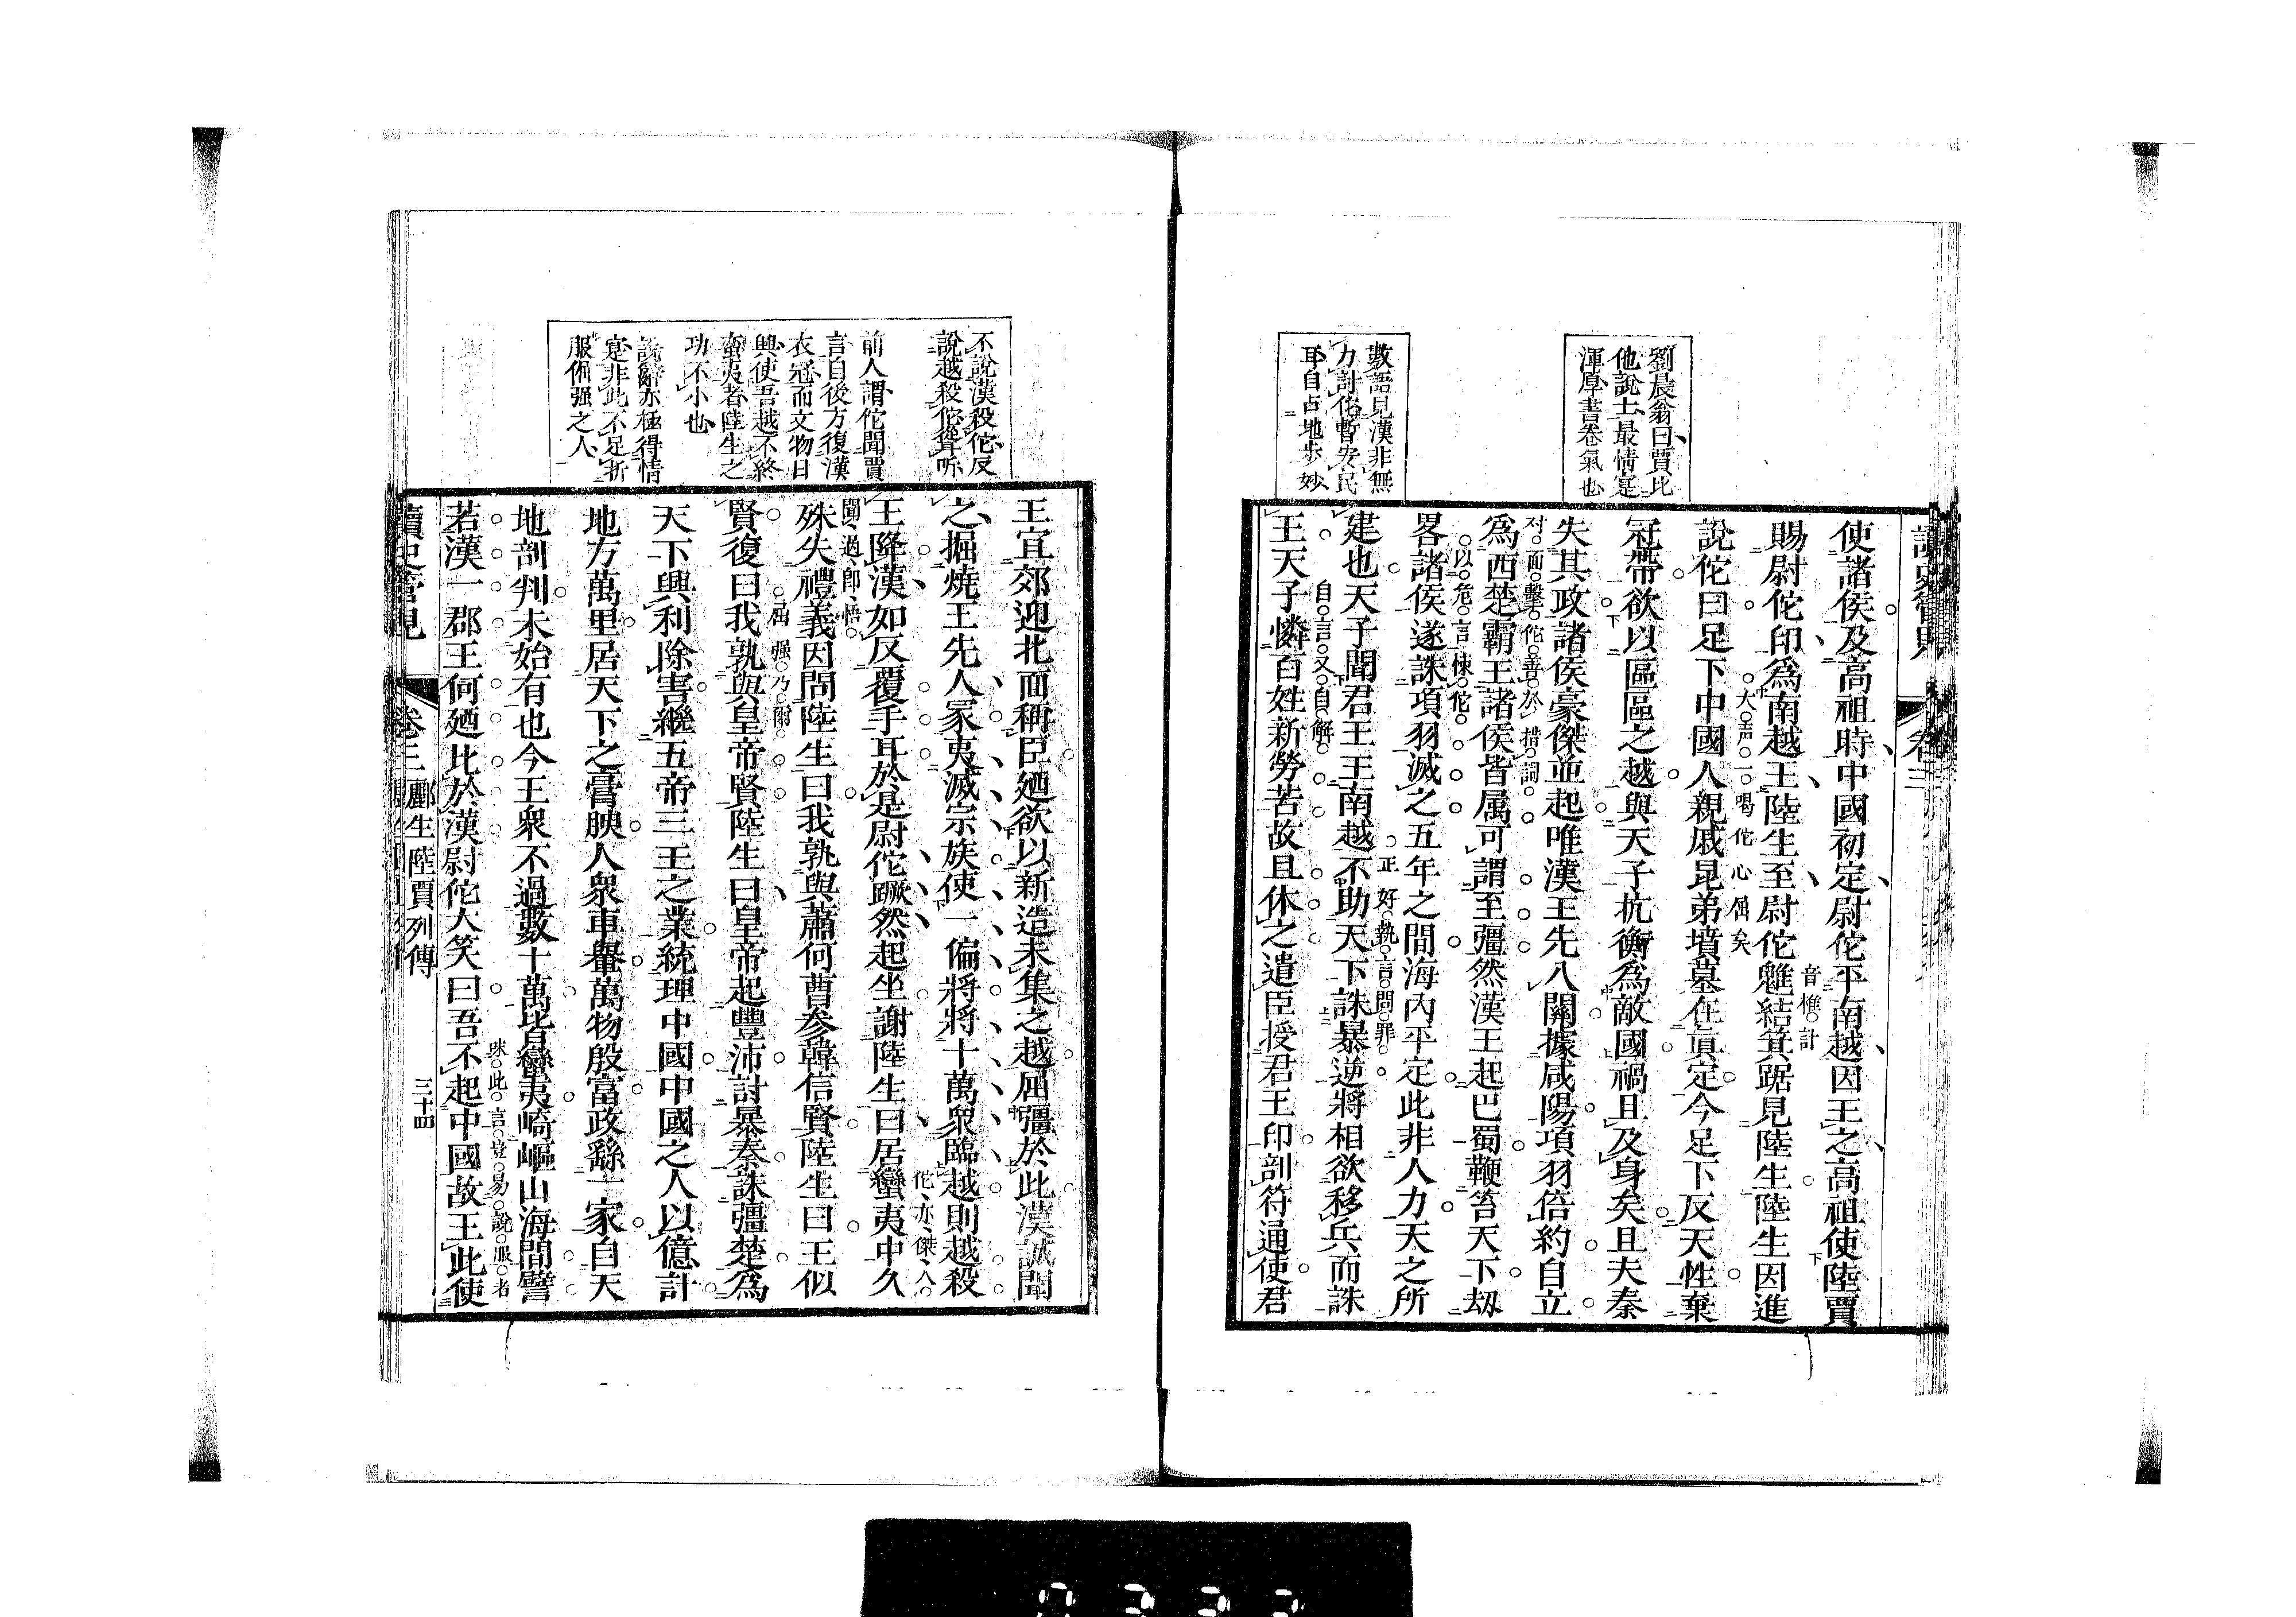 劉晨翁曰賈比
他說士最情寔
渾厚書卷氣也
數語見漢非無
力討佗暫安民
耳自占地步妙
卷三
使諸侯及高祖時中國初定尉佗平南越因王之高祖使陸賈
賜尉佗印爲南越王陸生至尉佗魋結箕踞見陸生陸生因進
音椎計
說佗曰足下中國人親戚昆弟墳墓在眞定今足下反天性棄
大声一喝佗心屈矣
冠帶欲以區區之越與天子抗衡爲敵國禍且及身矣且夫秦
失其政諸侯豪傑並起唯漢王先入關據咸陽項羽倍約自立
对面擊佗善於措詞
爲西楚霸王諸侯皆属可謂至彊然漢王起巴蜀鞭笞天下刼
以危言悚佗
畧諸侯遂誅項羽滅之五年之間海內平定此非人力天之所
建也天子聞君王王南越不助天下誅暴逆將相欲移兵而誅
正好執言問罪
王天子憐百姓新勞苦故且休之遣臣授君王印剖符通使君
自言又自解
不說漢殺佗反
說越殺佗聳听
前人謂佗聞賈
言自後方復漢
衣冠而文物日
興使吾越不終
蠻夷者陸生之
功不小也
說辭亦極得情
寔非此不足折
服倔强之人
王宜郊迎北面稱臣廼欲以新造未集之越屈彊於此漢誠聞
之掘燒王先人冢夷滅宗族使一偏將將十萬衆臨越則越殺
王降漢如反覆手耳於是尉佗蹶然起坐謝陸生曰居蠻夷中久
佗亦傑人
殊失禮義因問陸生曰我孰與蕭何曹參韓信賢陸生曰王似
聞過卽悟
賢復曰我孰與皇帝賢陸生曰皇帝起豐沛討暴秦誅彊楚爲
屈强乃爾
天下興利除害繼五帝三王之業統理中國中國之人以億計
地方萬里居天下之膏腴人衆車轝萬物殷富政繇一家自天
地剖判未始有也今王衆不過數十萬皆蠻夷崎嶇山海間譬
若漢一郡王何廼比於漢尉佗大笑曰吾不起中國故王此使
味此言豈易說服者
讀史管見
卷三
酈生陸賈列傳
三十四